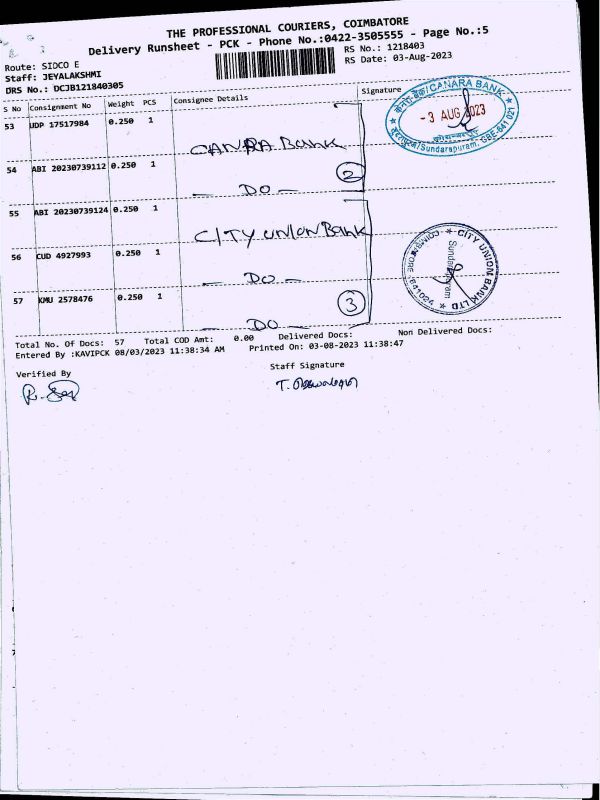 THE PROFESSIONAL COURIERS, COIMBATORE
Delivery Runsheet - PCK - Phone No.:0422-3505555 - Page No.:5
Route: SIDCO E
RS No.: 1218403
Staff: JEYALAKSHMI
RS Date: 03-Aug-2023
DRS No.: DCJB121840305
S No Consignment No Weight PCS Consignee Details Signature
53 UDP 17517984 0.250 1
CANARA Bank
54 ABI 20230739112 0.250 1
2
— DO —
55 ABI 20230739124 0.250 1
CITY UNION Bank
56 CUD 4927993 0.250 1
— DO —
57 KMU 2578476 0.250 1
3
— DO —
केनरा बैंक/CANARA BANK
- 3 AUG 2023
/Sundarapuram, CBE-641 021
CITY UNION BANK LTD
COIMBATORE-641024
Total No. Of Docs: 57 Total COD Amt: 0.00 Delivered Docs: Non Delivered Docs:
Entered By :KAVIPCK 08/03/2023 11:38:34 AM Printed On: 03-08-2023 11:38:47
Verified By
Staff Signature